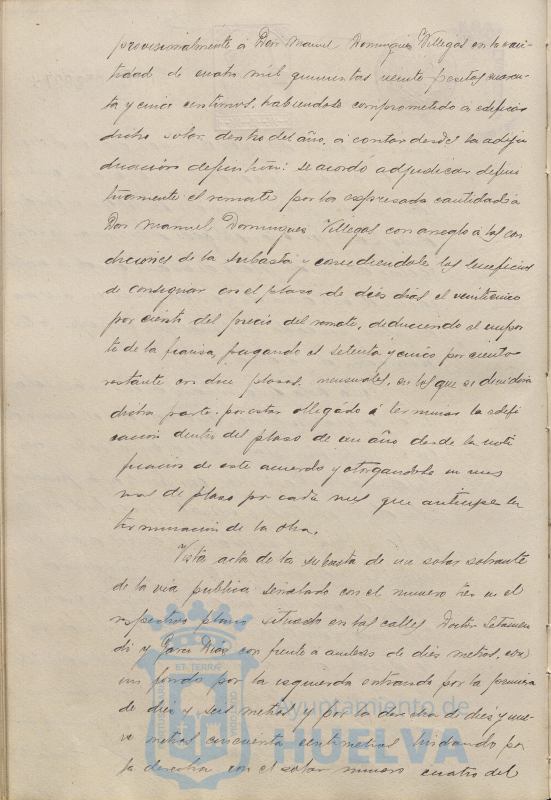 provisionalmente á Don Manuel Dominguez Villegas en la can-
tidad de cuatro mil quinientas veinte pesetas cuaren-
ta y cinco centimos, habiendose comprometido á edificar
dicho solar dentro del año, á contar desde la adju-
dicación definitiva: se acordó adjudicar defini-
tivamente el remate por la expresada cantidad á
Don Manuel Dominguez Villegas con arreglo á las con-
diciones de la subasta y concediendole los beneficios
de consignar en el plazo de diez dias el veinticinco
por ciento del precio del remate, deduciendo el impor-
te de la fianza, pagando el setenta y cinco por ciento
restante en doce plazos mensuales, en los que se dividirá
dicha parte, por estar obligado á terminar la edifi-
cación dentro del plazo de un año desde la noti-
ficación de este acuerdo y otorgandole un mes
mas de plazo por cada mes que anticipe la
terminación de la obra.
Vista acta de la subasta de un solar sobrante
de la via publica señalado con el numero tres en el
respectivo plano situado en las calles Doctor Letamen-
di y Garci Diaz con frente á ambas de diez metros, con
un fondo por la izquierda entrando por la primera
de diez y seis metros y por la derecha de diez y nue-
ve metros cincuenta centimetros lindando por
la derecha con el solar numero cuatro del
Ayuntamiento de
HUELVA